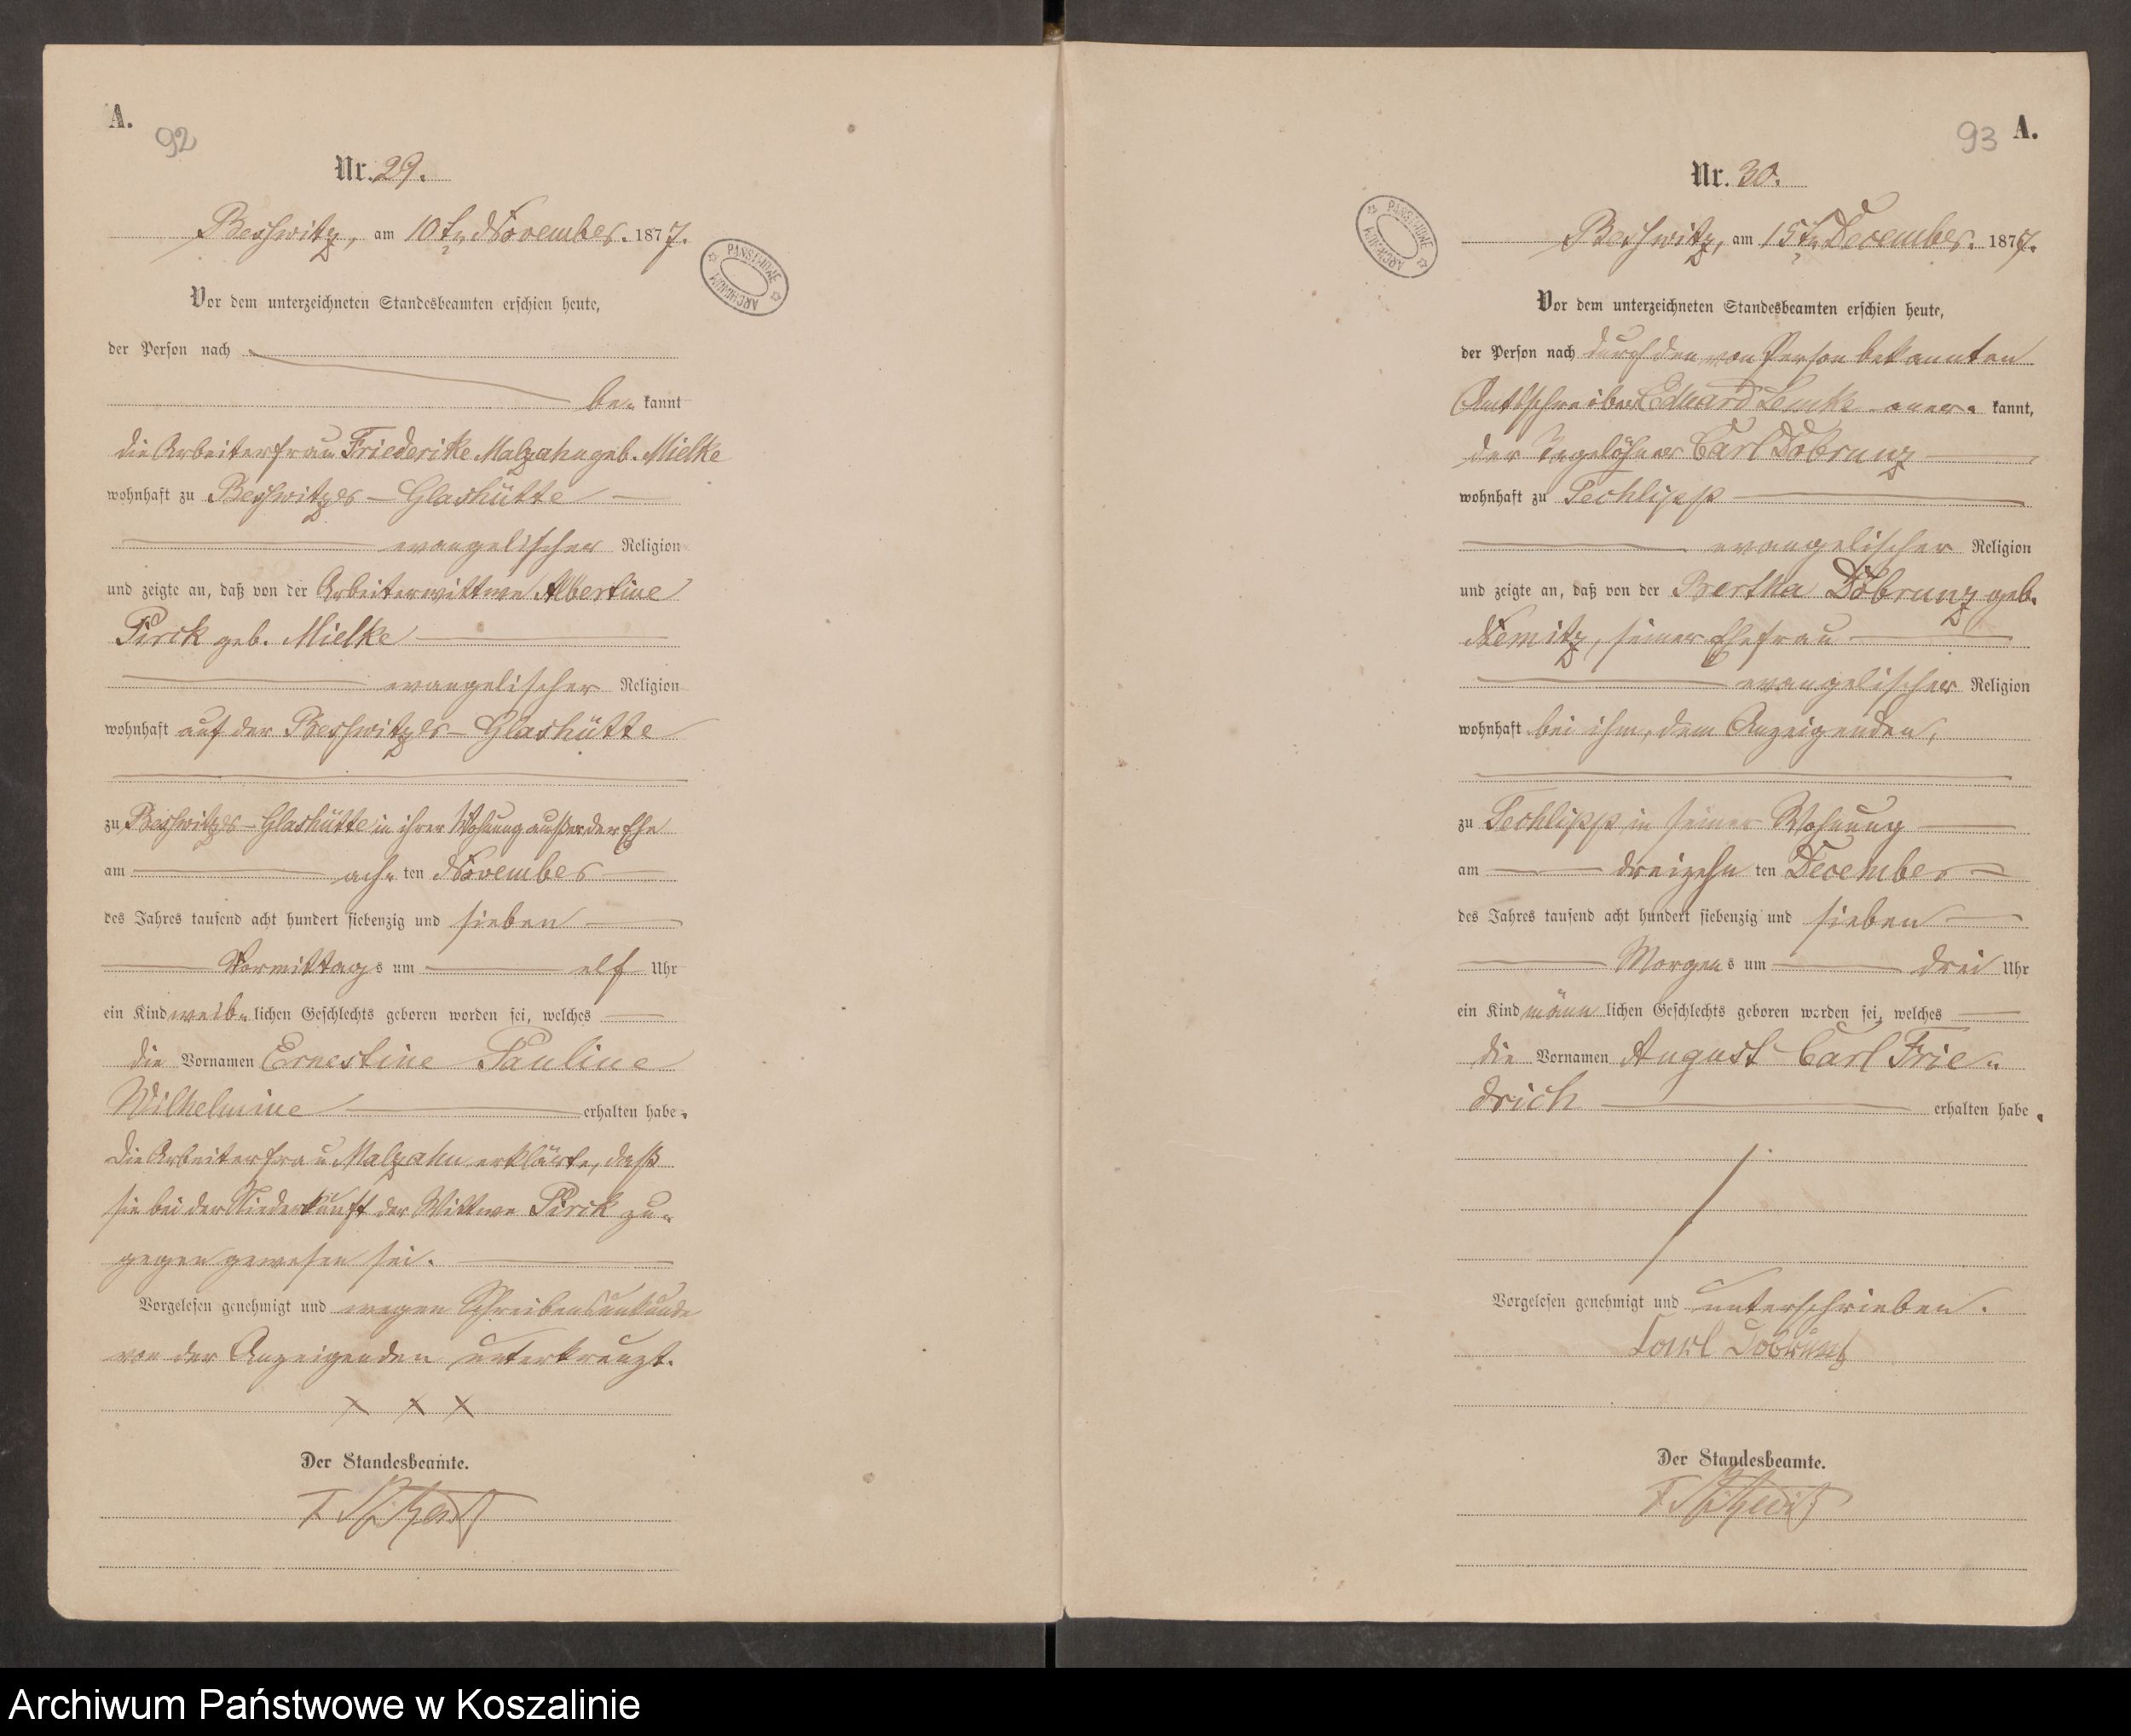 A.
92
Nr. 29.
Beßwitz, am 10ten November. 1877.
PAŃSTWOWE ARCHIWUM
Vor dem unterzeichneten Standesbeamten erschien heute,
der Person nach
be- kannt
die Arbeiterfrau Friederike Malzahn geb. Mielke
wohnhaft zu Beßwitzer-Glashütte
evangelischer Religion
und zeigte an, daß von der Arbeiterwittwe Albertine
Pirck geb. Mielke
evangelischer Religion
wohnhaft auf der Beßwitzer-Glashütte
zu Beßwitzer-Glashütte in ihrer Wohnung außer der Ehe
am ach- ten November
des Jahres tausend acht hundert siebenzig und sieben
Vormittags um elf Uhr
ein Kind weib- lichen Geschlechts geboren worden sei, welches
die Vornamen Ernestine Pauline
Wilhelmine erhalten habe.
Die Arbeiterfrau Malzahn erklärte, daß
sie bei der Niederkunft der Wittwe Pirck zu-
gegen gewesen sei.
Vorgelesen genehmigt und wegen Schreibensunkunde
von der Anzeigenden unterkreuzt.
x x x
Der Standesbeamte.
A.
93
Nr. 30.
Beßwitz, am 15ten December. 1877.
PAŃSTWOWE ARCHIWUM
Vor dem unterzeichneten Standesbeamten erschien heute,
der Person nach durch den von Person bekannten
Amtsschreiber Eduard Lemke aner- kannt,
der Tagelöhner Carl Dobrunz
wohnhaft zu Techlipp
evangelischer Religion
und zeigte an, daß von der Bertha Dobrunz geb.
Nemitz, seiner Ehefrau
evangelischer Religion
wohnhaft bei ihm, dem Anzeigenden,
zu Techlipp in seiner Wohnung
am dreizehn ten December
des Jahres tausend acht hundert siebenzig und sieben
Morgens um drei Uhr
ein Kind männ lichen Geschlechts geboren worden sei, welches
die Vornamen August Carl Frie-
drich erhalten habe.
Vorgelesen genehmigt und unterschrieben.
Carl Dobrunz
Der Standesbeamte.
Archiwum Państwowe w Koszalinie